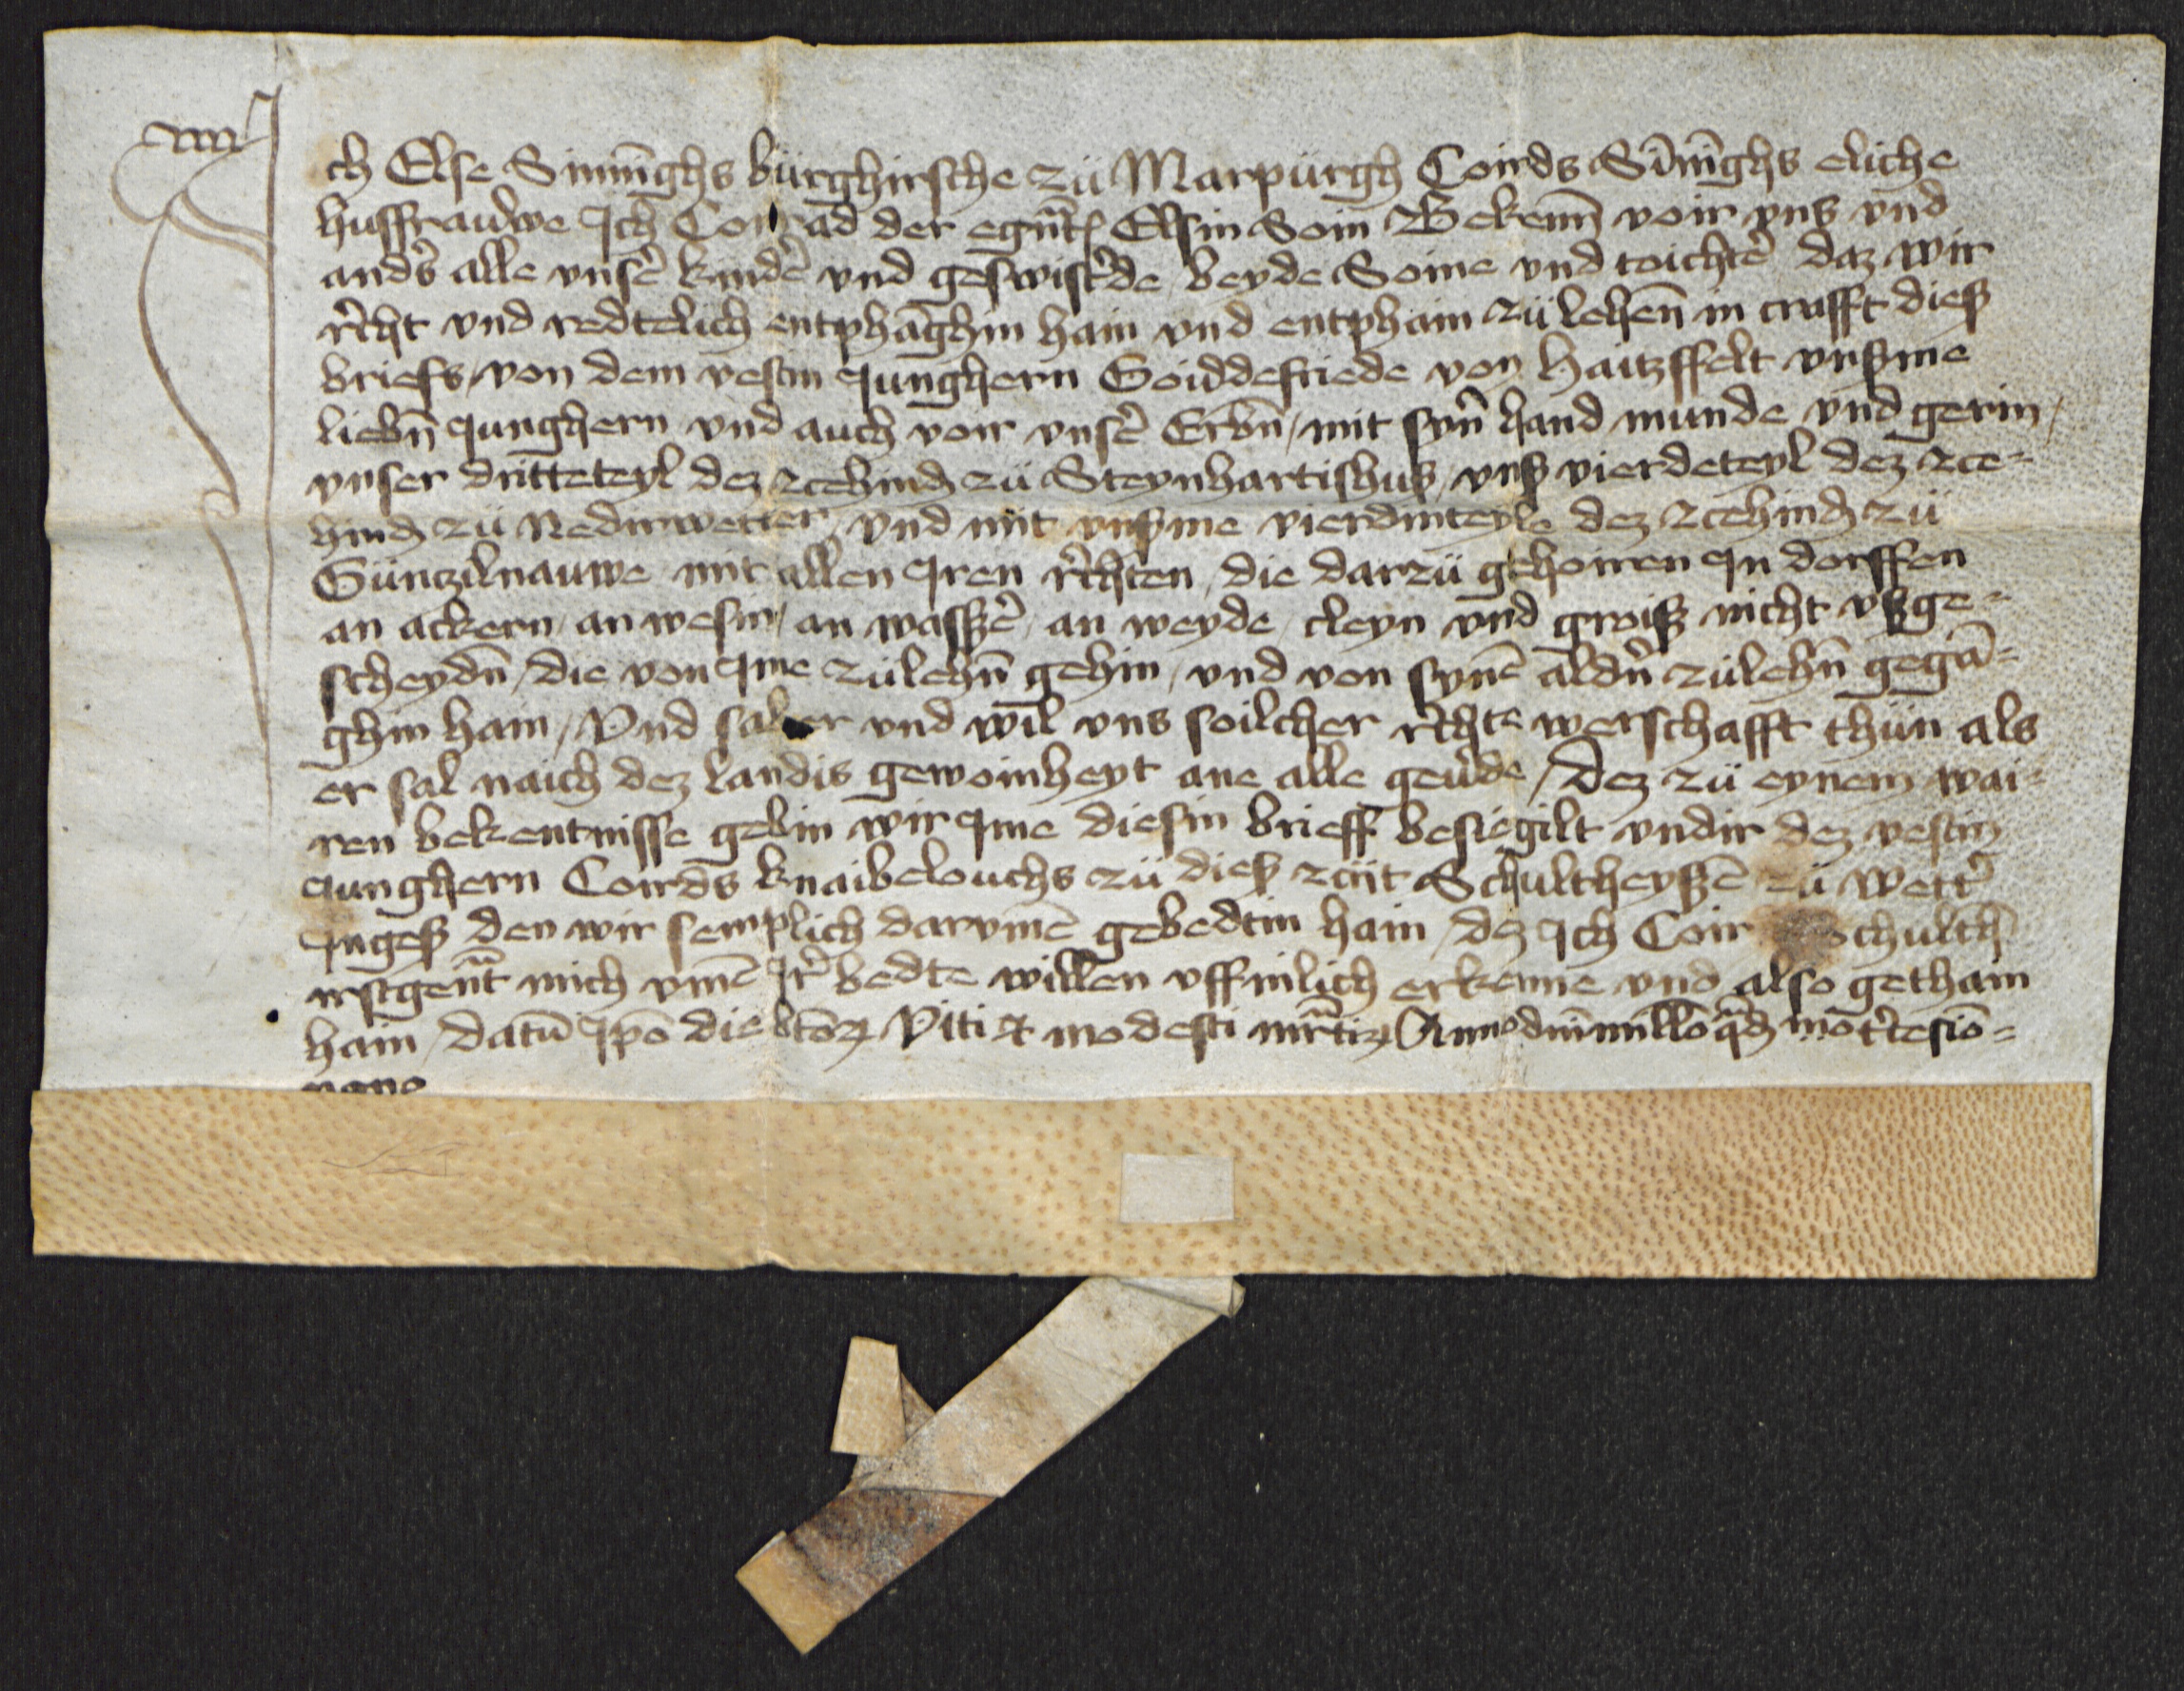 Ich Else Sininghs burghirsche zü Marpurgh Coirds Sininghs eliche
husfrauwe Ich Conrad der egnt Elsin Soin Bekenn voir vns vnd
anders alle vnser kinder vnd geswisterde beyde Soine vnd toichter daz wir
recht vnd redtelich entphaghin hain vnd entphain zü lehen in crafft dieß
briefs von dem vestin Junghern Goiddefriede von Haitzffelt vnßme
liebn Junghern vnd auch voir vnser Erbn mit syner hand munde vnd gerin
vnser dritteteyl dez zcehind zü Steynhartishuß vnß vierdeteyl dez zce-
hind zü Nedirwetter vnd mit vnßme vierdinteyle dez zcehind zü
Güntzilnauwe mit allen Iren rechten die darzü gehoiren In dorffen
an ackern an wesin an wasser an weyde cleyn vnd groiß nicht vßge-
scheydn die von Ime zü lehn gehin vnd von syne aldern zü lehn gega-
ghin hain Vnd sal er vnd wil vns soilcher rechte werschafft thün als
er sal naich dez landis gewoinheyt ane alle geuerde Dez zü eynem wai-
ren bekentnisse gebin wir Ime diesin brieff besiegilt vndir dez vestin
Junghern Coirds knaibelouchs zü dieß zciit Schultheyße zü Wetter
Ingeß den wir semplich darvme gebedtin hain dez Ich Coir Schulth
irstgent mich vme Ir bedte willen vffinlich erkenne vnd also gethain
hain datu Ipo die btoz Viti et modesti mrtiz Anno dni millo qdz mo t'cesio-
nono